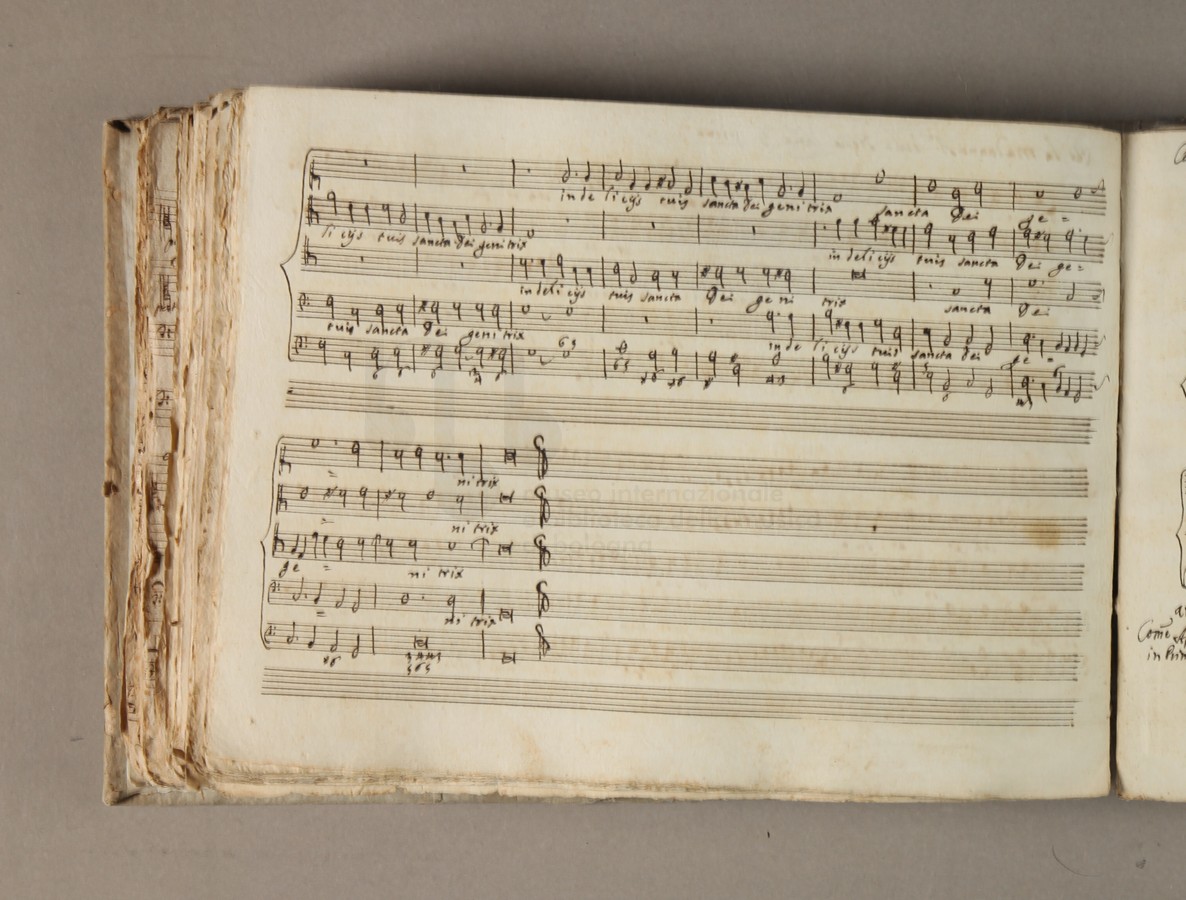 in de licijs tuis sancta Dei genitrix sancta Dei ge =
licijs tuis sancta Dei genitrix in delicijs tuis sancta Dei ge =
in delicijs tuis sancta Dei ge ni trix sancta Dei
tuis sancta Dei genitrix in de licijs tuis sancta Dei ge =
ni trix
ni trix
ge = ni trix
ni trix
museo internazionale
e biblioteca della musica
di bologna
Come
in